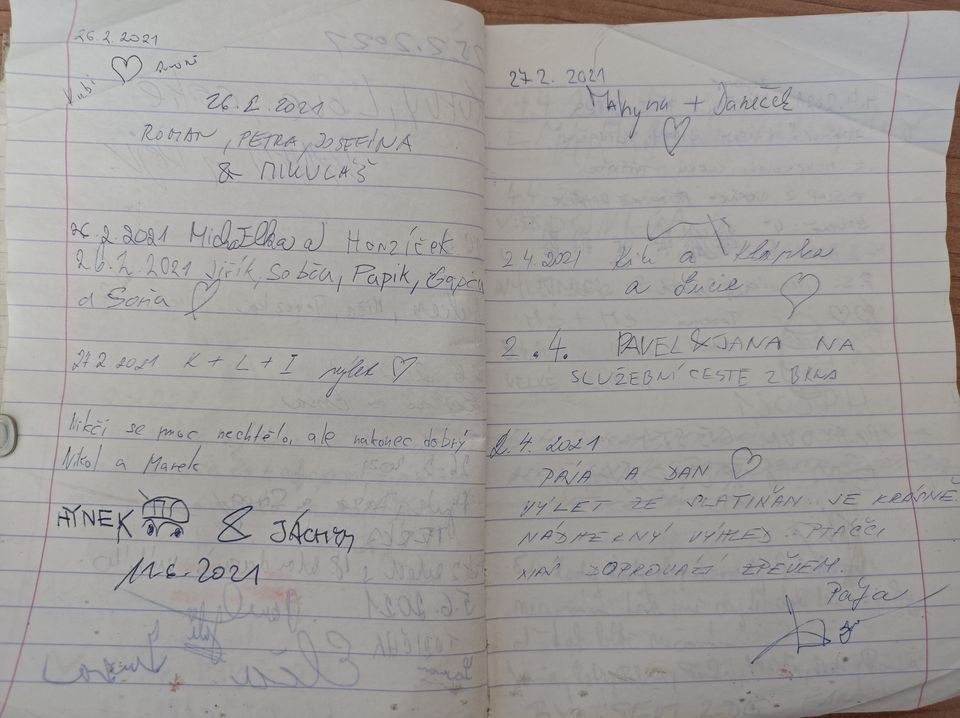 26.2.2021
Kubi
26.2.2021
ROMAN, PETRA, JOSEFÍNA
& MIKULÁŠ
26.2.2021 Michalka a Honzíček
26.2.2021 Jiřík, Sobču, Papik,
a Soňa
27.2 2021 K + L + I výlet
Nikči se moc nechtělo, ale nakonec dobrý
Nikol a Marek
HYNEK & JÁCHYM
11.6.2021
27.2. 2021
+ Daneček
2.4.2021 Kiki a
a Lucie
2.4. PAVEL & JANA NA
SLUŽEBNÍ CESTE Z BRNA
2.4. 2021
PÁJA A DAN
VÝLET ZE SLATIŇAN. JE KRÁSNĚ
NÁDHERNÝ VÝHLED. PTÁČCI
NÁS DOPROVÁZÍ ZPĚVEM.
Pája